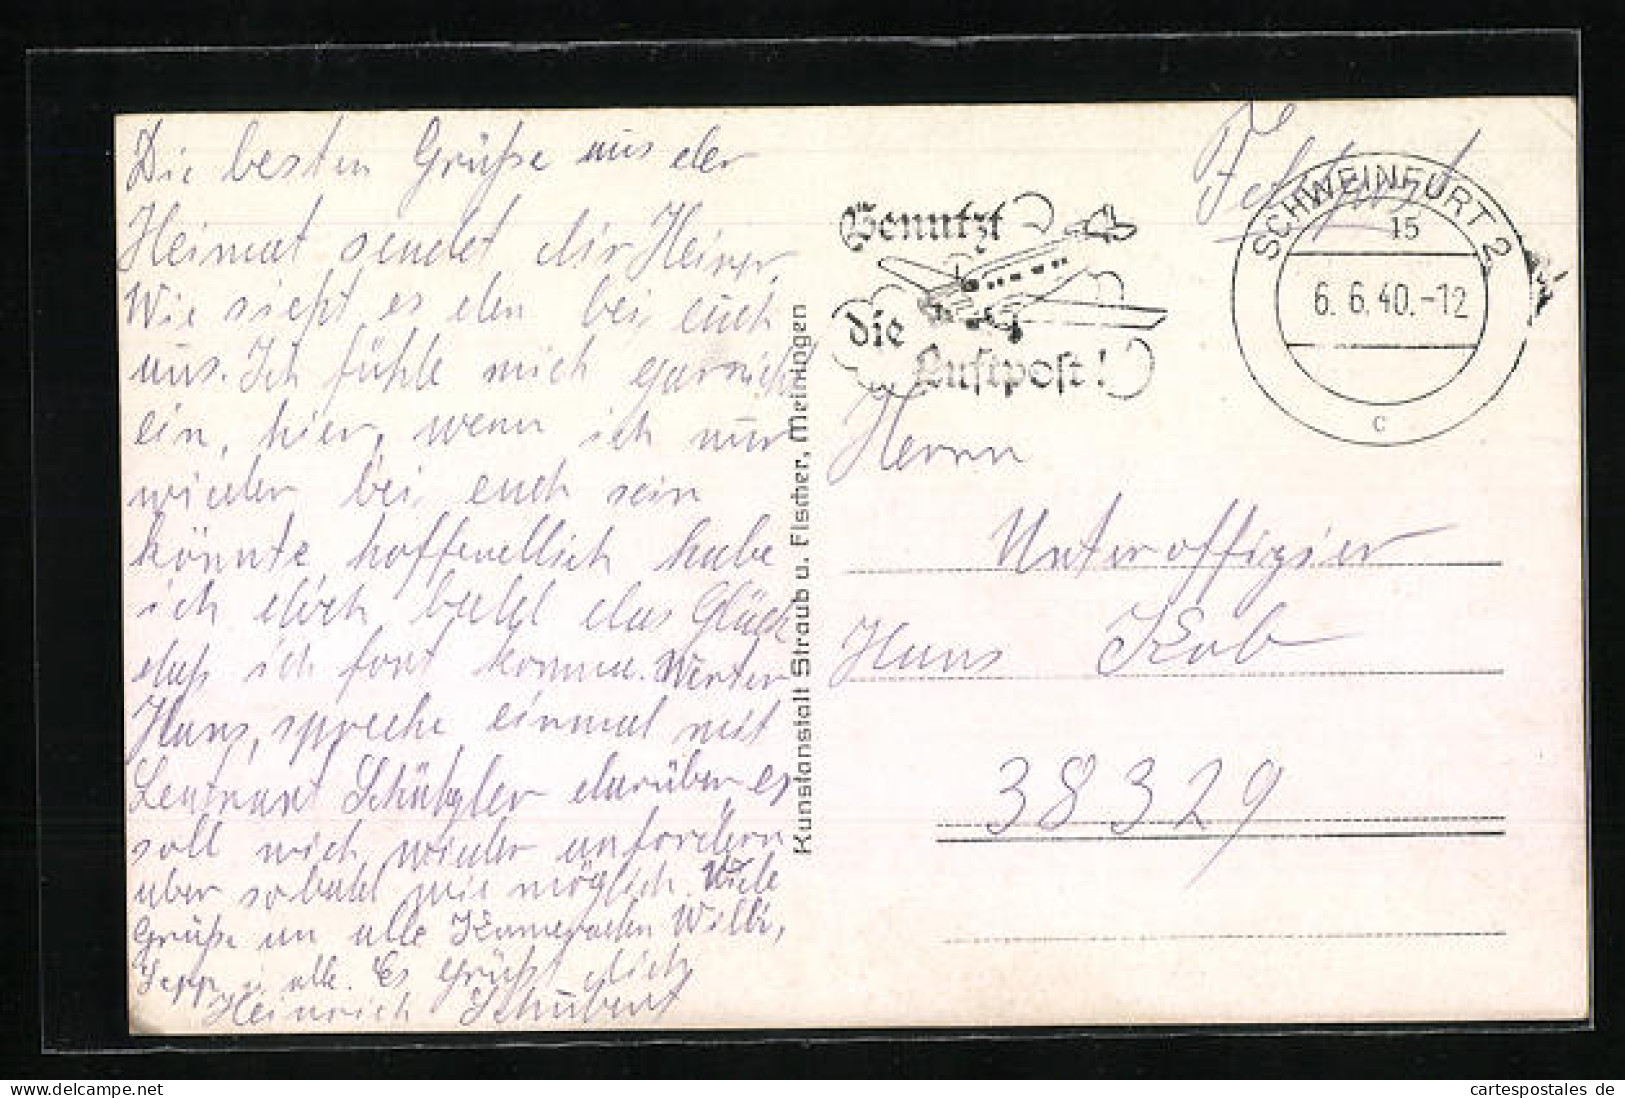 Die besten Grüße aus der
Heimat sendet dir Heiner.
Wie sieht es den bei euch
aus. Ich fühle mich garnicht
ein, hier, wenn ich nur
wieder bei euch sein
könnte hoffendlich habe
ich doch bald das Glück
daß ich fort komme. Werter
Hans, spreche einmal mit
Leutnant darüber es
soll mich wieder anfordern
aber sobald wie möglich. Viele
Grüße an alle Kameraden Willi,
Sepp u. alle. Es grüßt dich
Heinrich Schubert
Kunstanstalt Straub u. Fischer, Meiningen
Feldpost
Benutzt
die
Luftpost!
SCHWEINFURT 2
15
6.6.40.-12
c
Herrn
Unteroffizier
Hans Kob
38329
cartespostales de
cartespostales.de